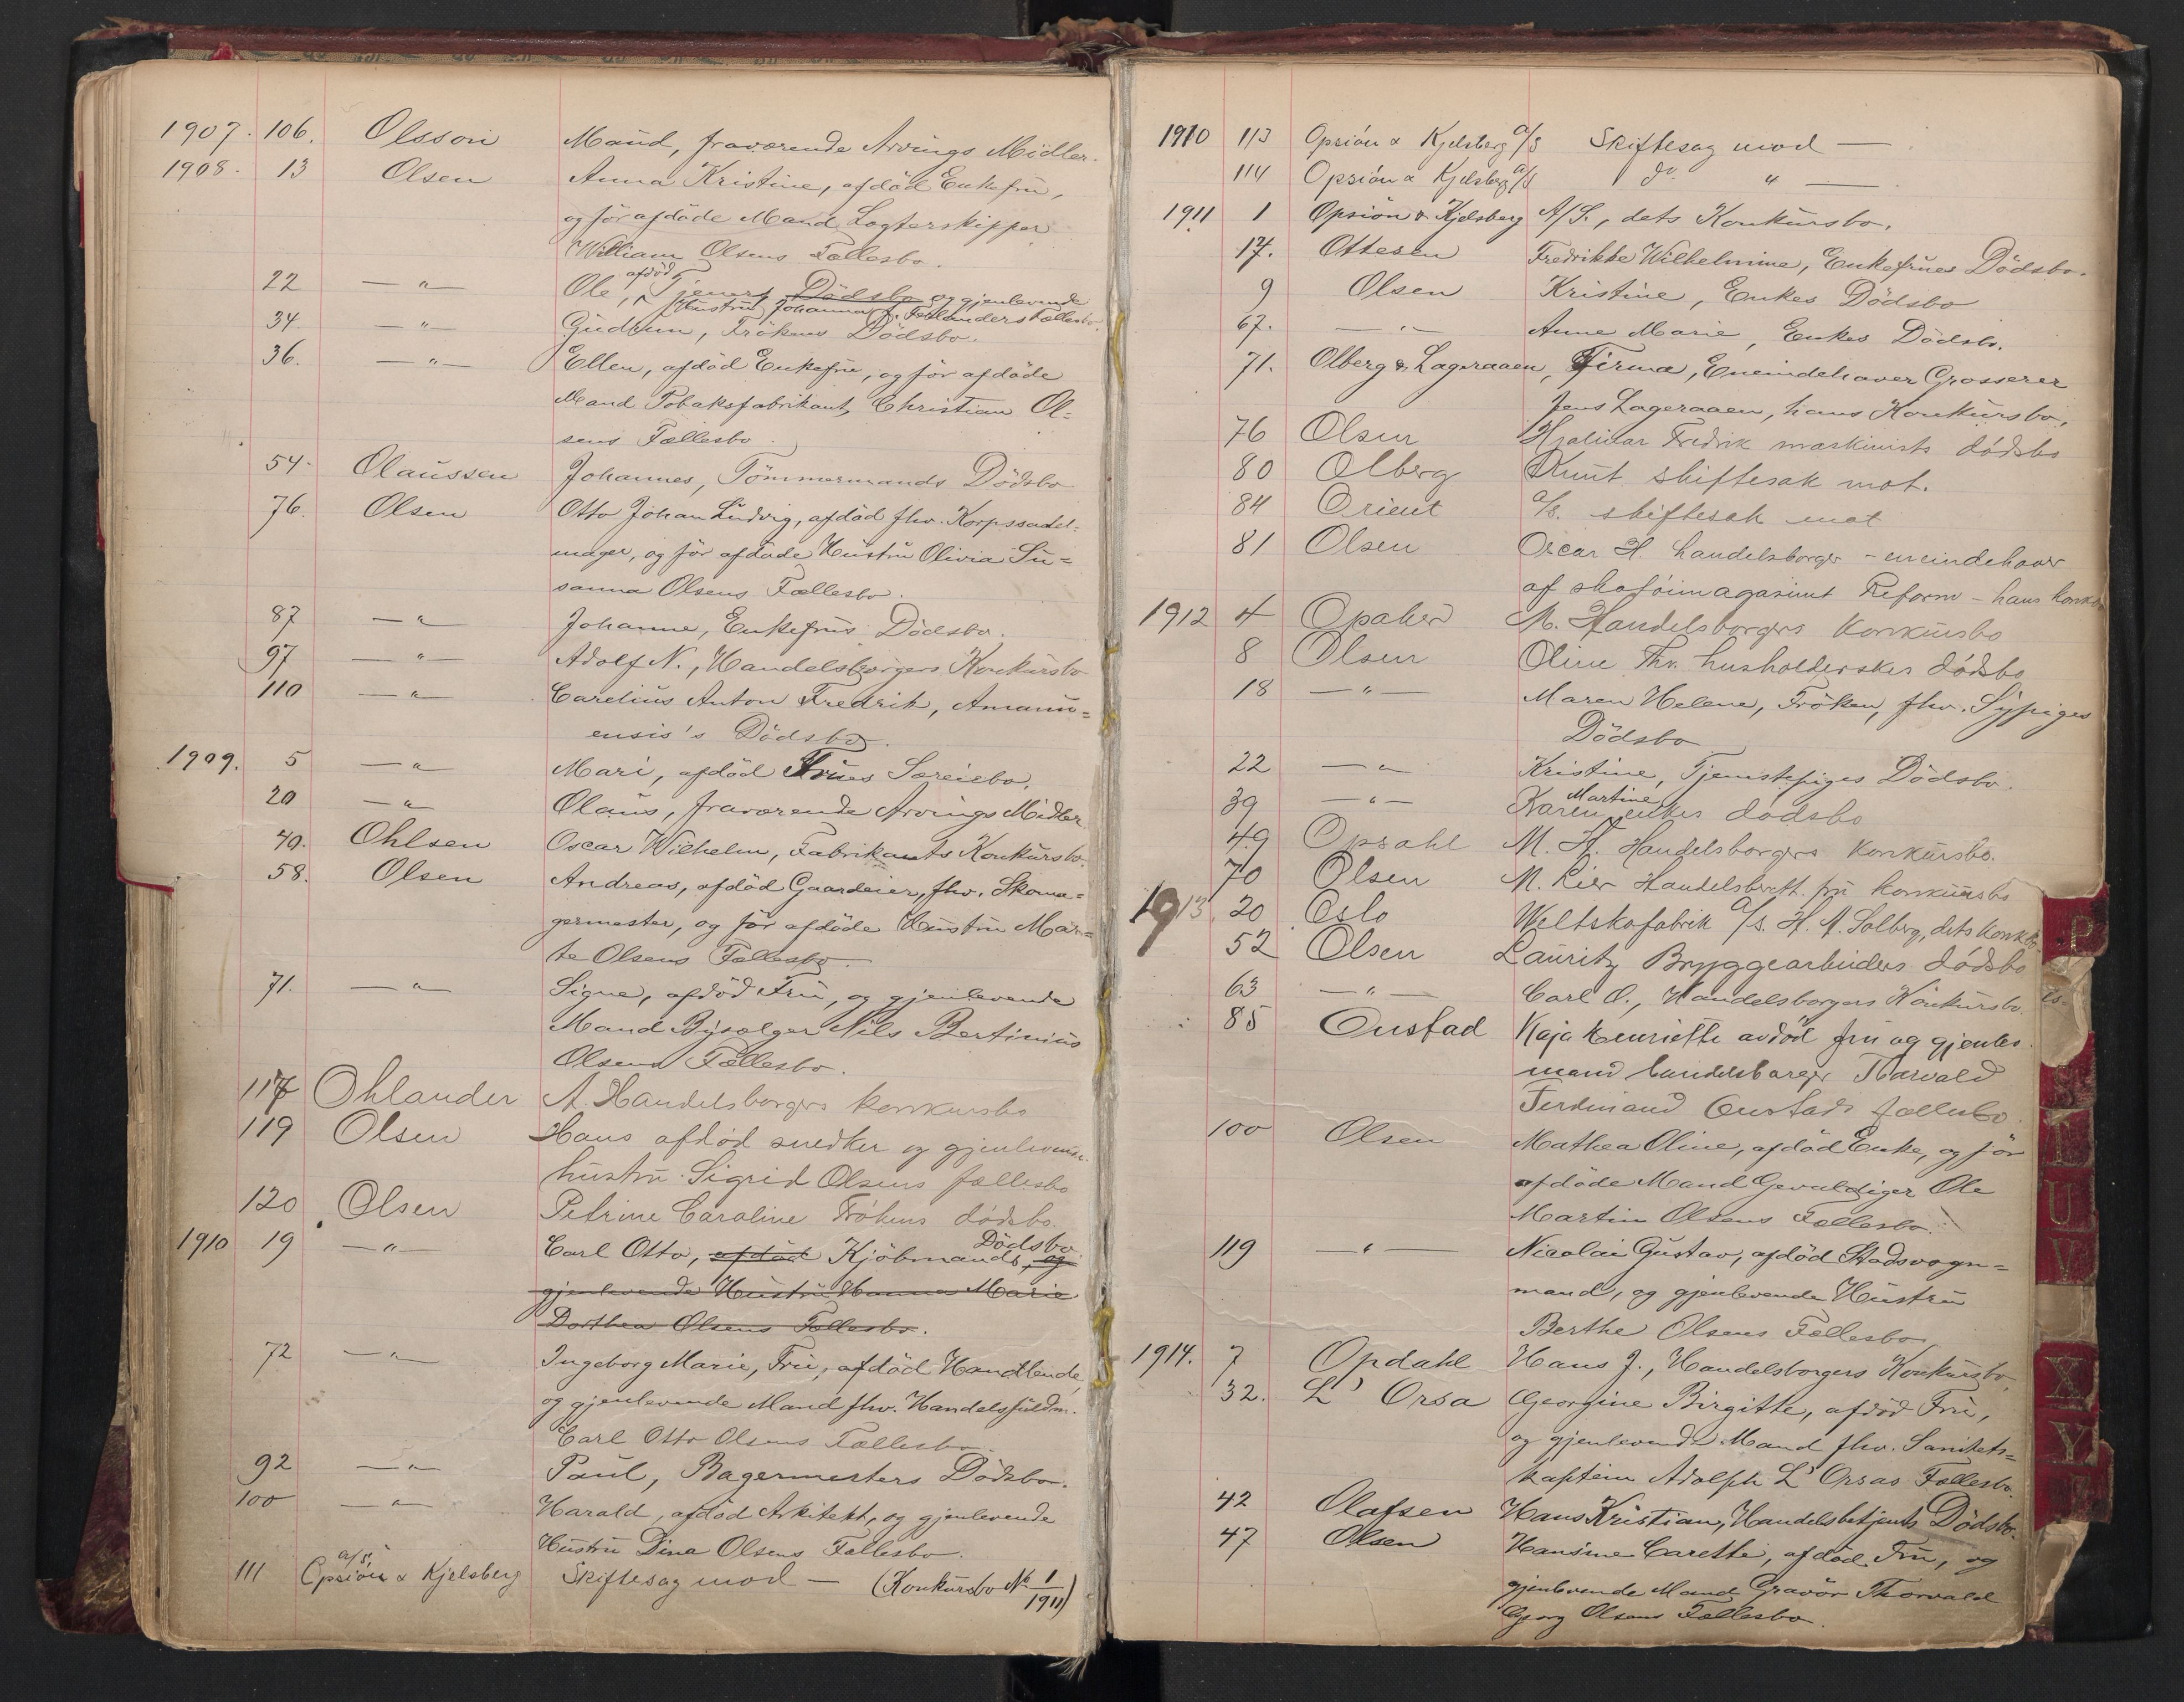 1907. 106. Olsson Maud, fraværende Arvings Midler.
1908. 13 Olsen Anna Kristine, afdöd Enkefru,
og för afdöde Mand Logterskipper
William Olsens Fællesbo.
22 — " — Ole, afdöd Tjeners Dödsbo og gjenlevende
Hustru Johanna
34. — " — Gudrun, Frökens Dödsbo.
36. — " — Ellen, afdöd Enkefru, og för afdöde
Mand Tobaksfabrikant, Christian Ol=
sens Fællesbo.
54. Olaussen Johannes, Tömmermands Dödsbo
76. Olsen Otto Johan Ludvig, afdöd fhv. Korpssadel-
mager, og för afdöde Hustru Olivia Su=
sanna Olsens Fællesbo.
87 — " — Johanne, Enkefrus Dödsbo.
97 — " — Adolf N., Handelsborgers Konkursbo
110 — " — Carelius Anton Fredrik, Amanu=
ensis's Dödsbo.
1909. 5 — " — Mari, afdöd Frues Særeiebo.
20 — " — Olaus, fraværende Arvings Midler
40. Ohlsen Oscar Wilhelm, Fabrikants Konkursbo.
58. Olsen Andreas, afdöd Gaardeier, fhv. Skoma=
germester, og för afdöde Hustru Mar=
te Olsens Fællesbo.
71. — " — Signe, afdöd Fru, og gjenlevende
Mand Bysælger Nils Bertinius
Olsens Fællesbo.
117 Ohlander A. Handelsborgers konkursbo
119 Olsen Hans afdöd snedker og gjenlevende
hustru Sigrid Olsens fællesbo
120 Olsen Petrine Caroline Frökens dödsbo.
1910 19 — " — Carl Otto, afdöd Kjöbmands Dödsbo. og
gjenlevende Hustru Hanna Marie
Dorthea Olsens Fællesbo.
72 — " — Ingeborg Marie, Fru, afdöd Handlende,
og gjenlevende Mand fhv. Handelsfuldm.
Carl Otto Olsens Fællesbo.
92 — " — Paul, Bagermesters Dödsbo.
100 — " — Harald, afdöd Arkitekt, og gjenlevende
Hustru Dina Olsens Fællesbo.
111 Opsion & Kjelsberg A/S, Skiftesag mod — (Konkursbo № 1/1911)
1910 113 Opsion & Kjelsberg A/S Skiftesag mod —
114 Opsion & Kjelsberg A/S do. " —
1911 1 Opsion & Kjelsberg A/S., dets Konkursbo.
17. Ottesen Fredrikke Wilhelmine, Enkefrues Dödsbo.
9 Olsen Kristine, Enkes Dödsbo
67. — " — Anne Marie, Enkes Dödsbo.
71. Olberg & Lageraaen, Firma, Eneindehaver Grosserer
Jens Lageraaen, hans Konkursbo.
76 Olsen Hjalmar Fredrik maskinists dödsbo
80 Olberg Knut skiftesak mot.
84 Orient A/S. skiftesak mot
81 Olsen Oscar H. handelsborger - eneindehaver
af skotöimagasinet Reform - hans konkbo
1912 4 Opaker M. Handelsborgers konkursbo
8 Olsen Oline Thv. husholderskes dödsbo
18 — " — Maren Helene, Fröken, fhv. Sypiges
Dödsbo
22 — " — Kristine, Tjenestepiges Dödsbo.
39 — " — Karen Martine enkes dödsbo
49 Opsahl M. H. Handelsborgers konkursbo.
70 Olsen M. Lier Handelsberett. fru konkursbo
1913. 20 Oslo Weltskofabrik A/S. H. A. Solberg, dets konkbo.
52 Olsen Lauritz Bryggearbeiders dödsbo
63 — " — Carl O., Handelsborgers Konkursbo.
85 Onstad Kaja Henriette avdöd fru og gjenlev.
mand handelsborger Thorvald
Ferdinand Onstads fællesbo.
100 Olsen Mathea Oline, afdöd Enke, og för
afdöde Mand Gevaldiger Ole
Martin Olsens Fællesbo.
119 — " — Nicolai Gustav, afdöd Stadsvogn=
mand, og gjenlevende Hustru
Berthe Olsens Fællesbo
1914. 7 Opdahl Hans J., Handelsborgers Konkursbo,
32. L' Orsa Georgine Birgitte, afdöd Fru,
og gjenlevende Mand fhv. Sanitets=
kaptein Adolph L' Orsas Fællesbo.
42 Olafsen Hans Kristian, Handelsbetjents Dödsbo.
47 Olsen Hansine Carette, afdöd Fru, og
gjenlevende Mand Gravör Thorvald
Georg Olsens Fællesbo.
P
S
T
U
V
X
Y